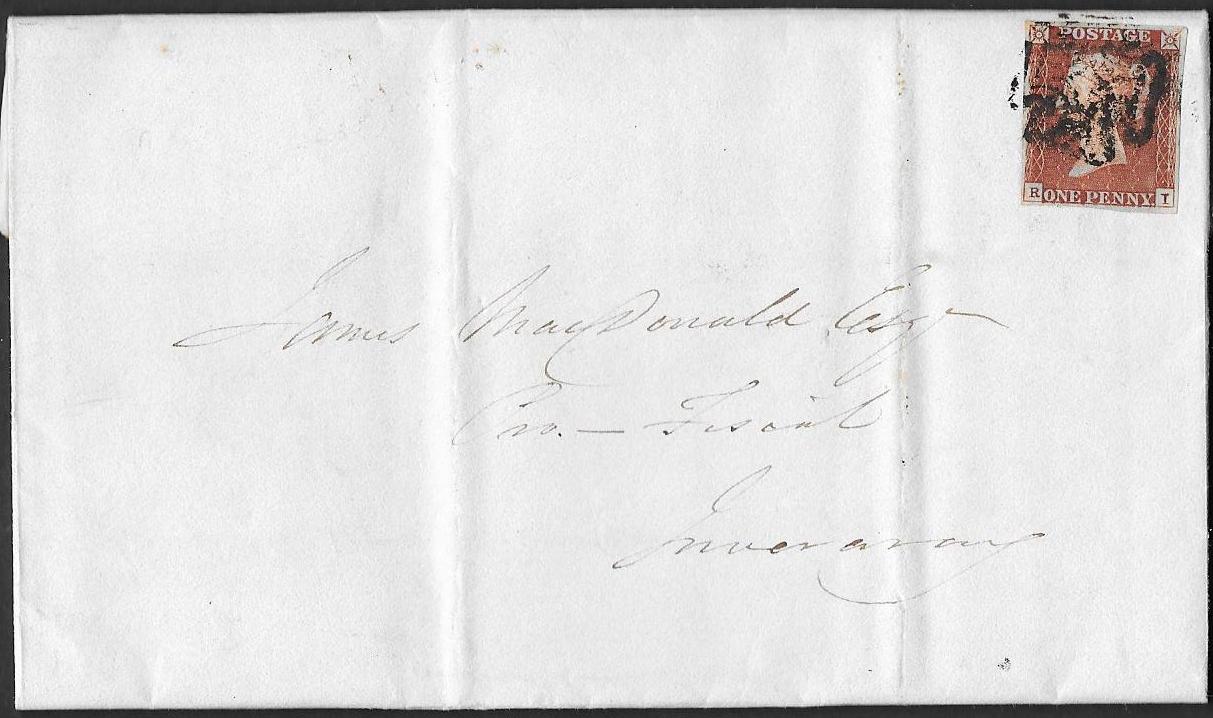 POSTAGE
R ONE PENNY. T
James MacDonald Esqr
Pro. — Fiscal
Inveraray